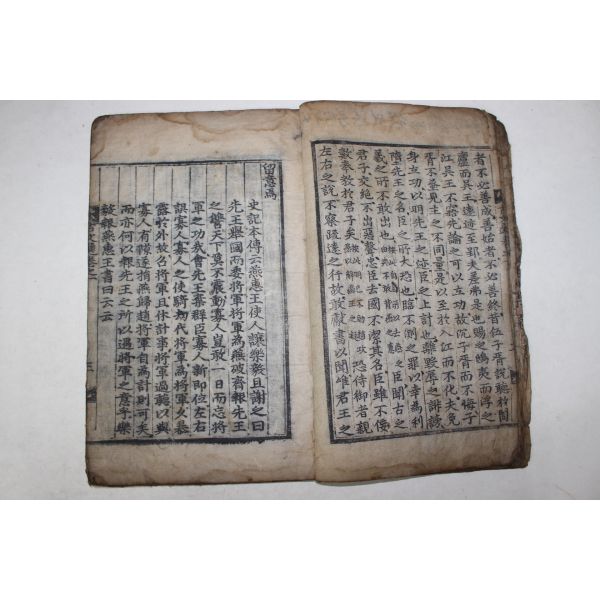 者不必善成善始者不必善終昔伍子胥說聽於闔
廬而吳王遠迹至郢夫差弗是也賜之鴟夷而浮之
江吳王不寤先論之可以立功故沉子胥而不悔子
胥不蚤見主之不同量是以至於入江而不化夫免
身立功以明先王之迹臣之上計也離毀辱之誹謗
墮先王之名臣之所大恐也臨不測之罪以幸為利
義之所不敢出也臣聞古之
君子交絕不出惡聲忠臣去國不潔其名臣雖不佞
數奉教於君子矣恐侍御者親
左右之說不察疏遠之行故敢獻書以聞唯君王之
留意焉
史記本傳云燕惠王使人讓樂毅且謝之曰
先王舉國而委將軍將軍為燕破齊報先王
之讐天下莫不震動寡人豈敢一日而忘將
軍之功哉會先王棄群臣寡人新即位左右
誤寡人寡人之使騎劫代將軍為將軍久暴
露於外故召將軍且休計事將軍過聽以與
寡人有隙遂捐燕歸趙將軍自為計則可矣
而亦何以報先王之所以遇將軍之意乎樂
毅報燕惠王書曰云云